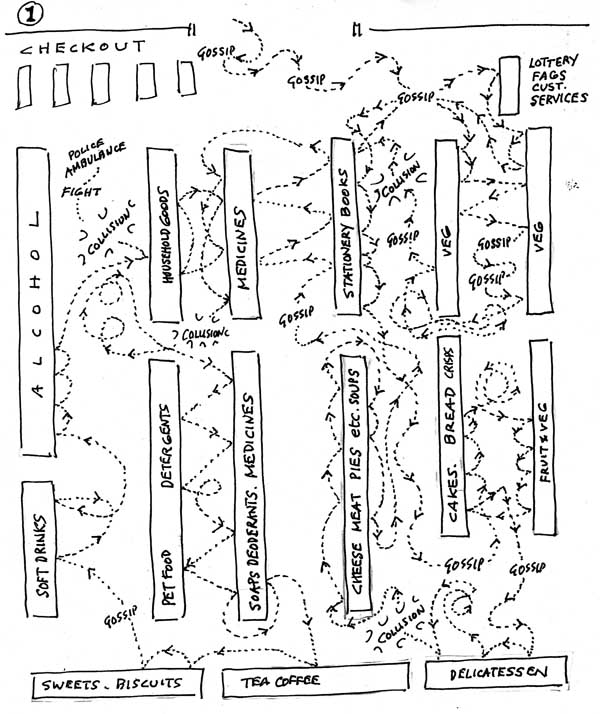 1
CHECKOUT
GOSSIP
GOSSIP
GOSSIP
LOTTERY
FAGS
CUST.
SERVICES
POLICE
AMBULANCE
FIGHT
COLLISION
ALCOHOL
HOUSEHOLD GOODS
MEDICINES
STATIONERY BOOKS
COLLISION
GOSSIP
VEG
GOSSIP
GOSSIP
VEG
COLLISION
GOSSIP
SOFT DRINKS
PET FOOD DETERGENTS
SOAPS DEODERANTS MEDICINES
CHEESE MEAT PIES etc. SOUPS
CAKES. BREAD CRISPS
FRUIT & VEG
GOSSIP
GOSSIP
GOSSIP
COLLISION
SWEETS. BISCUITS
TEA COFFEE
DELICATESSEN